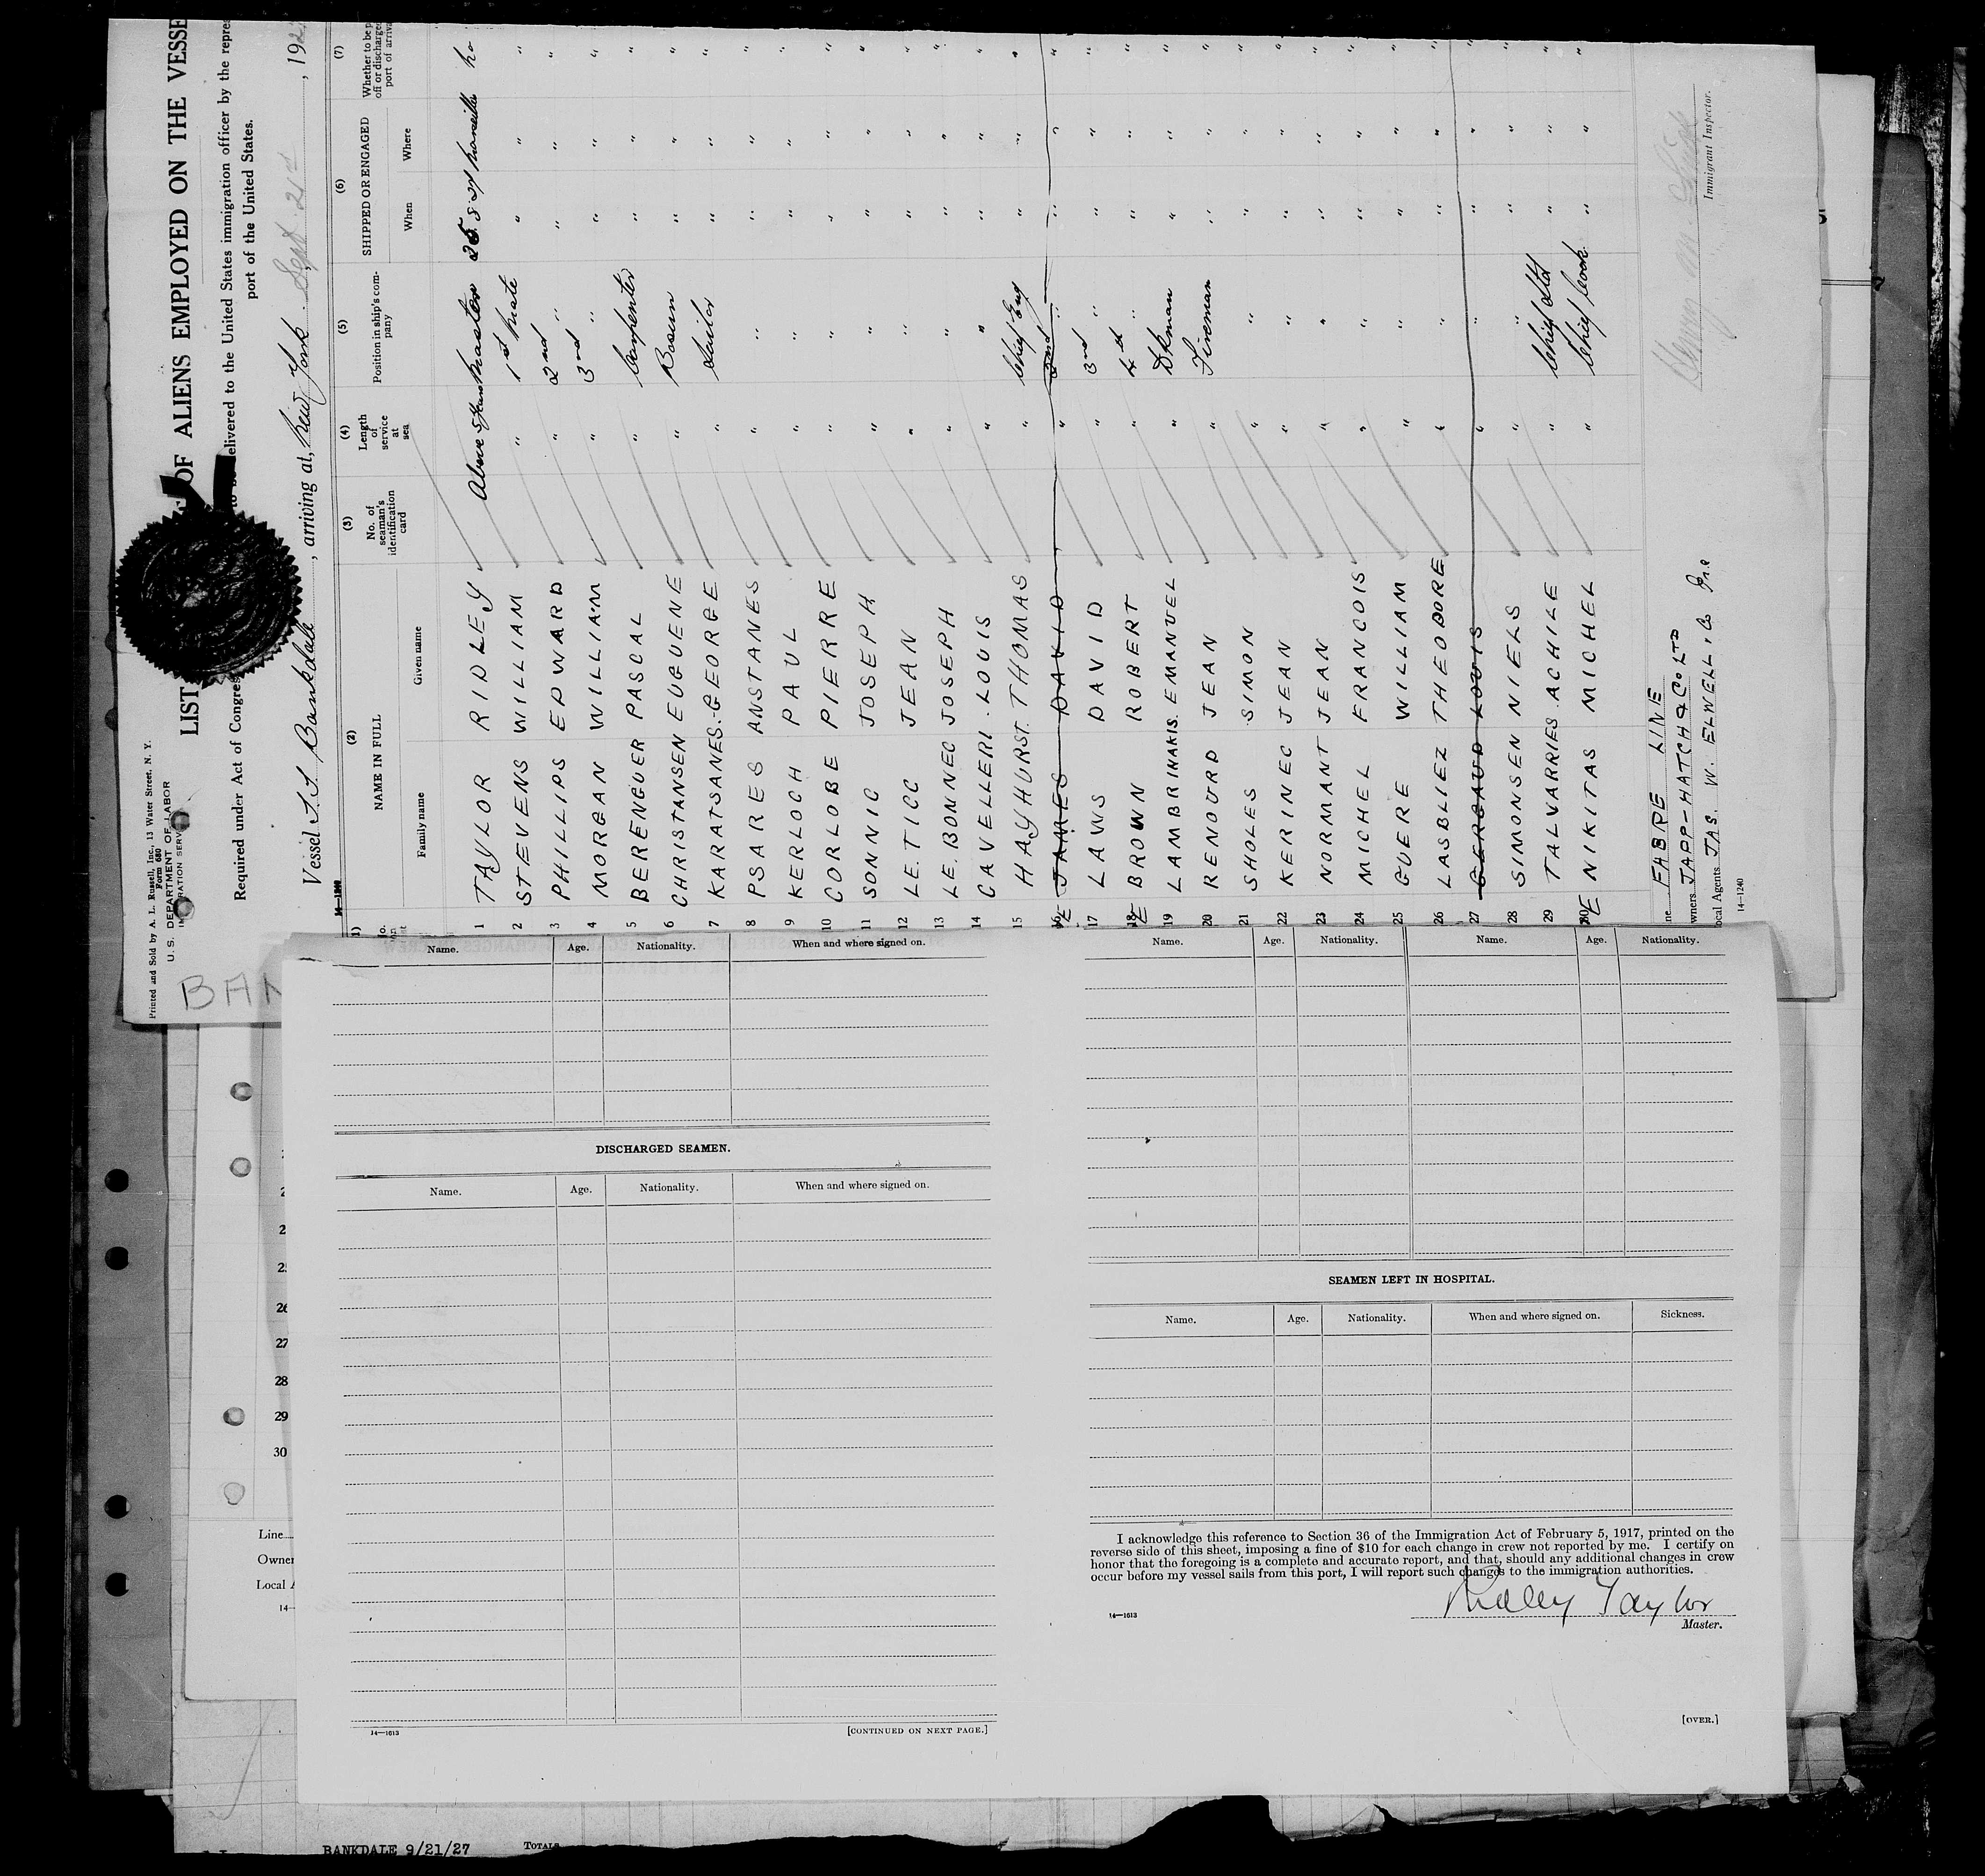 Printed and Sold by A. L. Russell, Inc., 13 Water Street, N. Y.
Form 680
U. S. DEPARTMENT OF LABOR
BAN
LIST OF ALIENS EMPLOYED ON THE VESSE
Required under Act of Congres to be delivered to the United States immigration officer by the repre
port of the United States.
Vessel S.S. Bankdale, arriving at, New York Sept. 21st, 192
(2) (3) (4) (5) (6) (7)
NAME IN FULL
Family name Given name
No. of seaman's identification card
Length of service at sea
Position in ship's company
SHIPPED OR ENGAGED
When Where
Whether to be p
off or discharge
port of arriva
1 TAYLOR RIDLEY Above Master 25.8.27 Marseille no
2 STEVENS WILLIAM " 1st Mate " " "
3 PHILLIPS EDWARD " 2nd " " " "
4 MORGAN WILLIAM " 3rd " " " "
5 BERENGUER PASCAL " Carpenter " " "
6 CHRISTANSEN EUGUENE " Bosun " " "
7 KARATSANES. GEORGE " Sailor " " "
8 PSARES ANSTANES " " " " "
9 KERLOCH PAUL " " " " "
10 CORLOBE PIERRE " " " " "
11 SONNIC JOSEPH " " " " "
12 LE.TICC JEAN " " " " "
13 LE.BONNEC JOSEPH " " " " "
14 CAVELLERI. LOUIS " " " " "
15 HAYHURST. THOMAS " Chief Eng " " "
16 JAMES DAVID " 2nd " " " "
17 LAWS DAVID " 3rd " " " "
18 BROWN ROBERT " 4th " " " "
19 LAMBRINAKIS. EMANUEL " Dkman " " "
20 RENOURD JEAN " Fireman " " "
21 SHOLES SIMON " " " " "
22 KERINEC JEAN " " " " "
23 NORMANT JEAN " " " " "
24 MICHEL FRANCOIS " " " " "
25 GUERE WILLIAM " " " " "
26 LASBLIEZ THEODORE " " " " "
27 GERGAUD LOUIS " " " "
28 SIMONSEN NIELS " " " " "
29 TALVARRIES. ACHILE " Chief Std " " "
30 NIKITAS MICHEL " Chief Cook " " "
ne FABRE LINE
wners JAPP-HATCH & Co LTD
ocal Agents JAS. W. ELWELL & Co Inc
14—1240
Immigrant Inspector.
Name. Age. Nationality. When and where signed on.
DISCHARGED SEAMEN.
Name. Age. Nationality. When and where signed on.
14—1613 [CONTINUED ON NEXT PAGE.]
Name. Age. Nationality. Name. Age. Nationality.
SEAMEN LEFT IN HOSPITAL.
Name. Age. Nationality. When and where signed on. Sickness.
I acknowledge this reference to Section 36 of the Immigration Act of February 5, 1917, printed on the
reverse side of this sheet, imposing a fine of $10 for each change in crew not reported by me. I certify on
honor that the foregoing is a complete and accurate report, and that, should any additional changes in crew
occur before my vessel sails from this port, I will report such changes to the immigration authorities.
Ridley Taylor
14—1613 Master.
[OVER.]
26
27
28
29
30
Line
Owner
Local A
14—
BANKDALE 9/21/27 TOTALS